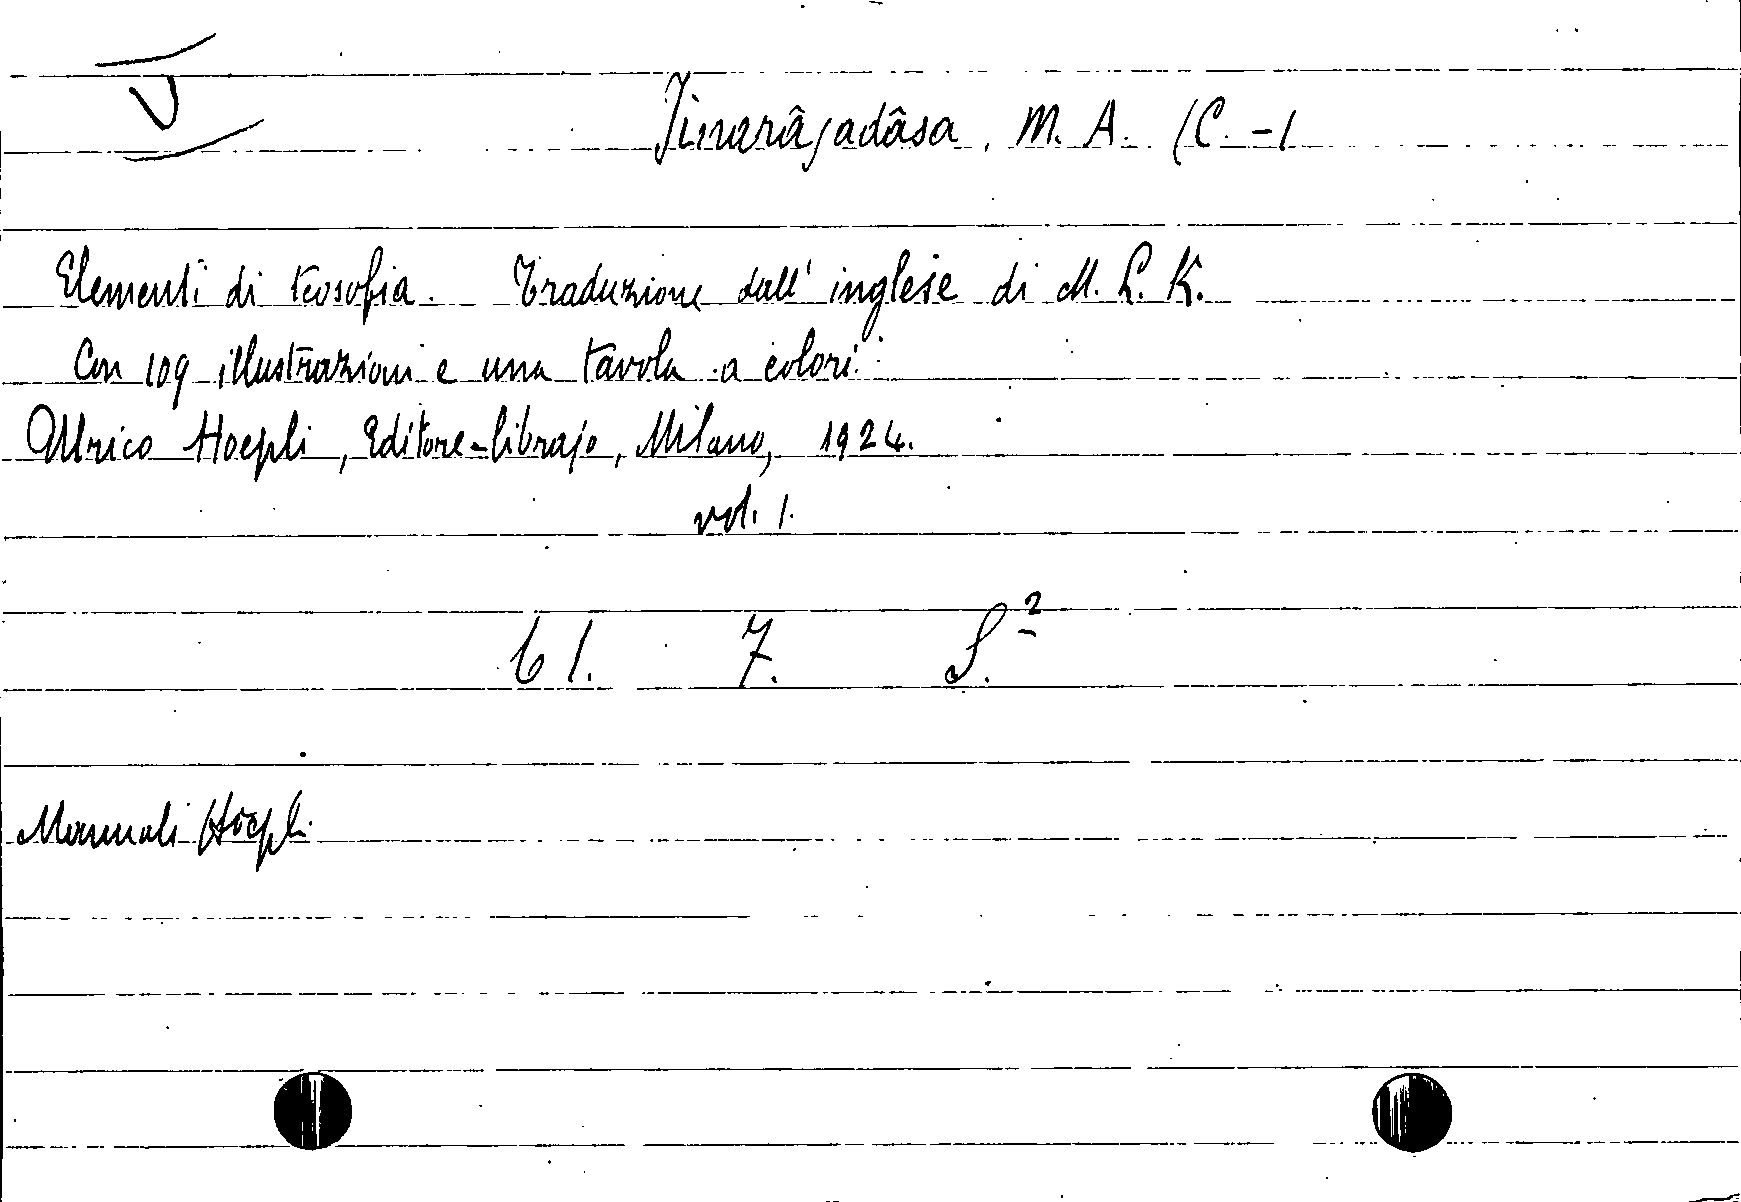 V
Jinarâjadâsa, M. A. (C. -)
Elementi di teosofia. Traduzione dall' inglese di M. L. K.
Con 109 illustrazioni e una tavola a colori.
Ulrico Hoepli, Editore-librajo, Milano, 1924.
vol. 1.
61. 7. S.²
Manuali Hoepli